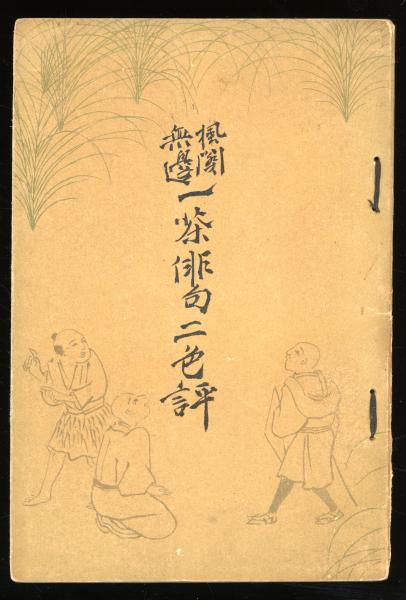 楓関
無辺
一茶俳句二色評